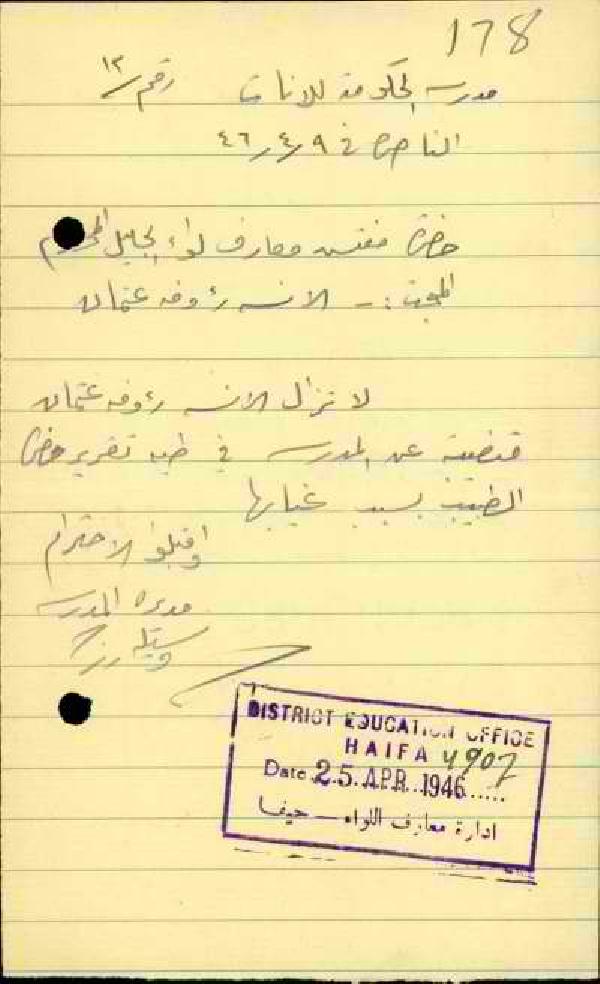 178
مدرسة الحكومة للاناث رقم /١٢
الناصرة في ٤٦/٤/٩
حضرة مفتش معارف لواء الجليل المحترم
المبحث :- الانسه رؤوفه عثمان
لا تزال الانسه رؤوفه عثمان
عن المدرسه في طيه تقرير حضرة
الطبيب بسبب غيابها
واقبلوا الاحترام
مديرة المدرسه
DISTRICT EDUCATION OFFICE
HAIFA 4907
Date 25. APR. 1946.....
ادارة معارف اللواء — حيفا